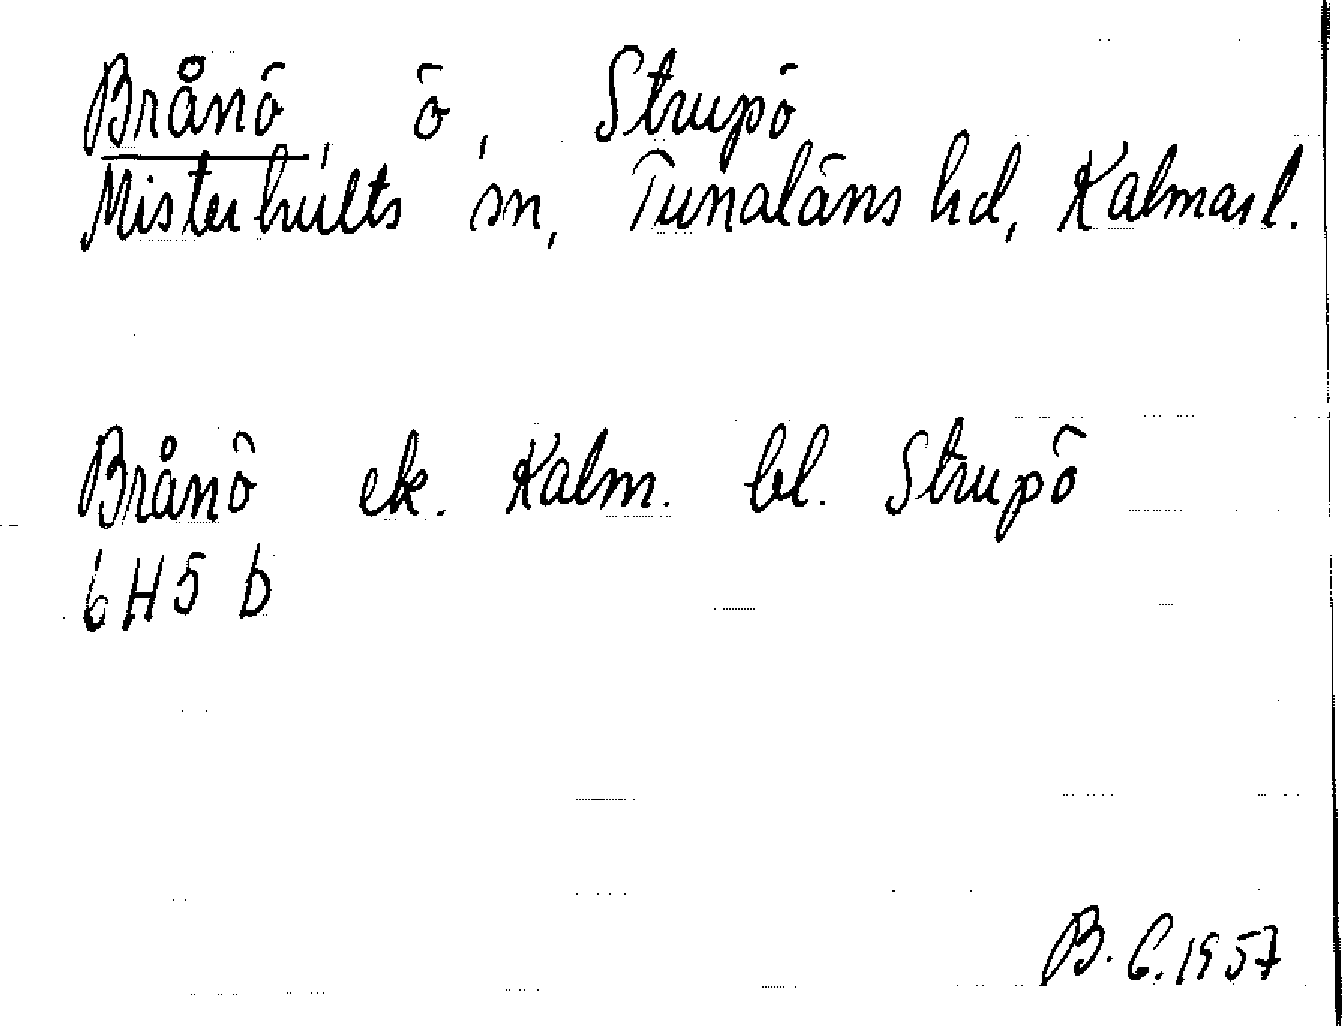 Brånö, ö, Strupö
Misterhults sn, Tunaläns hd, Kalmar l.
Brånö ek. Kalm. bl. Strupö
6H5 b
B. G. 1957